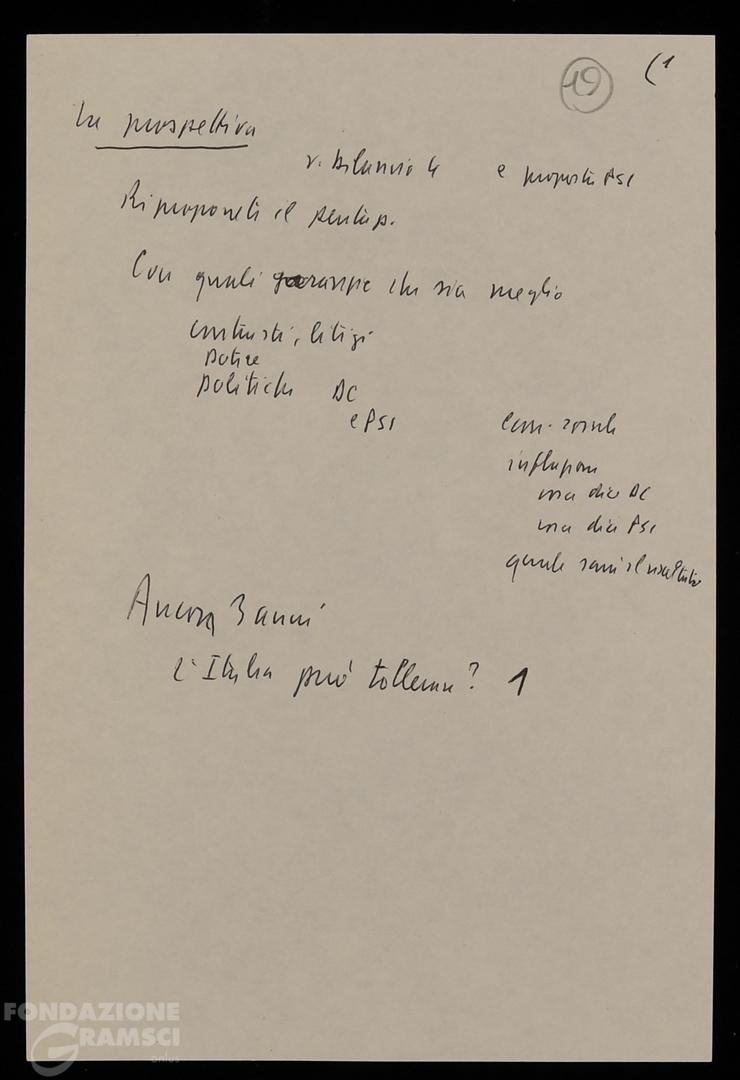 19 (1
La prospettiva
v. bilancio 4 e proposta PSI
Riproponete il pentap.
Con quali garanzie che sia meglio
contrasti, litigi
politiche DC
e PSI
influenza
una dia DC
una dia PSI
quale sarà il risultato
Ancora 3 anni
L'Italia può tollerare? 1
FONDAZIONE
GRAMSCI
onlus